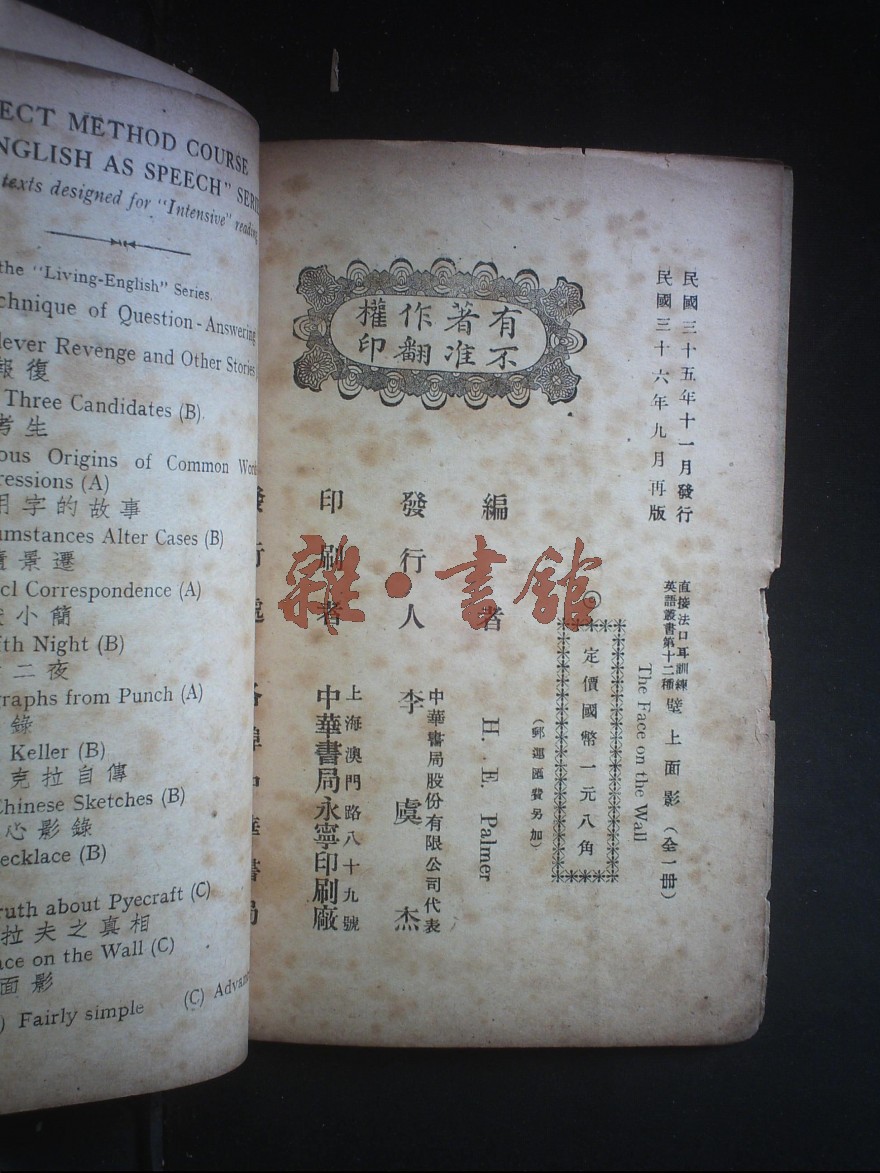 ECT METHOD COURSE
NGLISH AS SPEECH" SERIE
texts designed for "Intensive" reading
the "Living-English" Series.
chnique of Question-Answering
lever Revenge and Other Stories
報復
Three Candidates (B).
考生
ous Origins of Common Word
ressions (A)
用字的故事
umstances Alter Cases (B)
景遷
cl Correspondence (A)
小簡
fth Night (B)
二夜
graphs from Punch (A)
錄
Keller (B)
克拉自傳
Chinese Sketches (B)
心影錄
ecklace (B)
ruth about Pyecraft (C)
拉夫之真相
ace on the Wall (C)
面影
) Fairly simple (C) Advan
民國三十五年十一月發行
民國三十六年九月再版
有著作權
不准翻印
直接法口耳訓練
英語叢書第十二種
壁上面影(全一册)
The Face on the Wall
◎定價國幣一元八角
(郵運匯費另加)
編者 H. E. Palmer
發行人 李虞杰
中華書局股份有限公司代表
印刷者 中華書局永寧印刷廠
上海澳門路八十九號
發行處 各埠中華書局
雜·書館